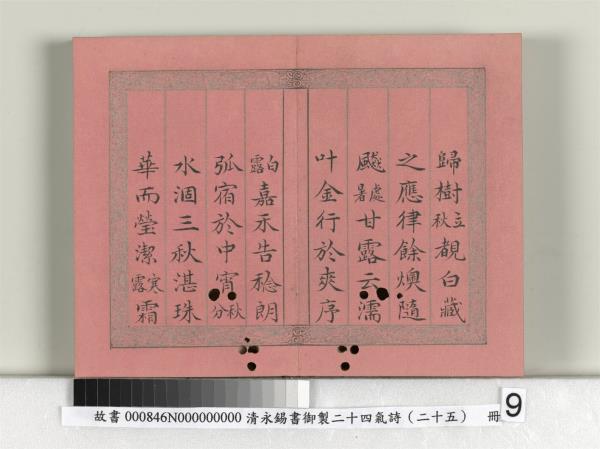 歸樹立秋覩白藏
之應律餘燠隨
飈處暑甘露云濡
叶金行於爽序
白露嘉禾告稔朗
弧宿於中宵秋分
水涸三秋湛珠
華而瑩潔寒露霜
故書 000846N000000000 清永錫書御製二十四氣詩（二十五） 冊 9